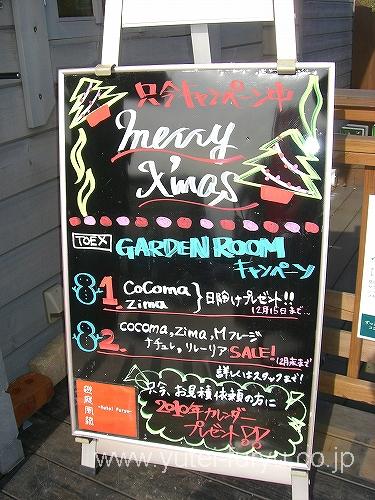 只今キャンペーン中
merry
X'mas
TOEX GARDEN ROOM
キャンペーン
81. CoComa
Zima
日除けプレゼント!!
12月15日まで...
82. cocoma, Zima, Mフレージ
ナチュレ, リレーリア SALE!
12月末まで
詳しくはスタッフまで!
只今、お見積依頼の方に
2010年カレンダー
プレゼント!!
遊庭風流
-Yutei Furyu-
www.yutei-furyu.co.jp